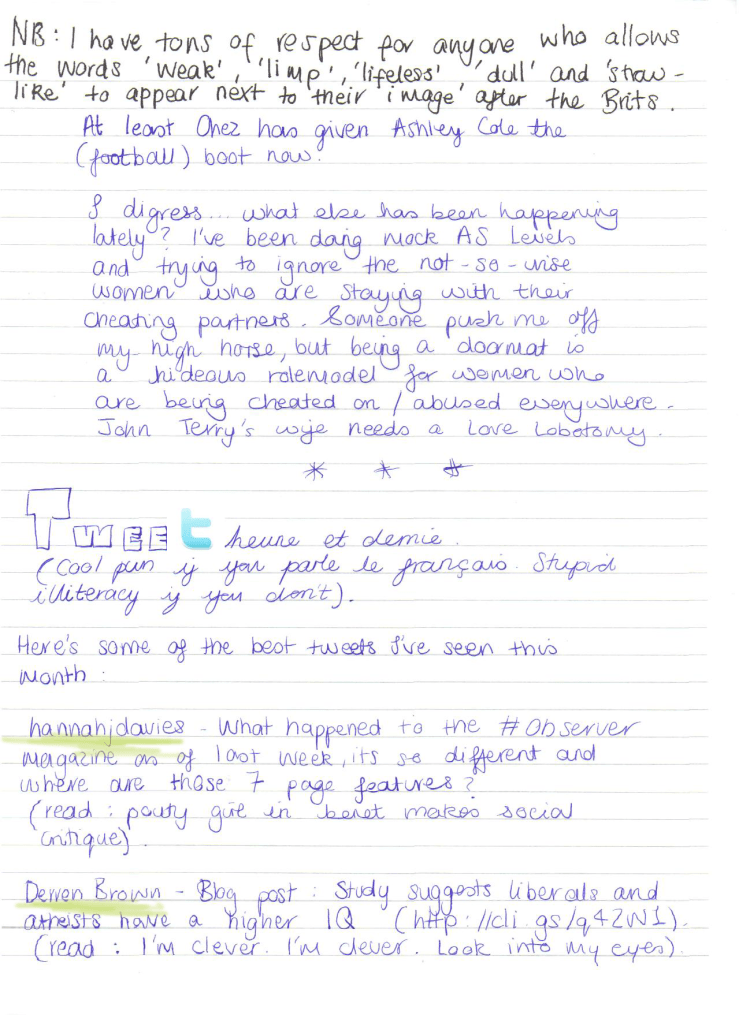 NB: I have tons of respect for anyone who allows
the words 'weak', 'limp', 'lifeless' 'dull' and 'straw-
like' to appear next to their 'image' after the Brits.
At least Chez has given Ashley Cole the
(football) boot now.
I digress... what else has been happening
lately? I've been doing mock AS Levels
and trying to ignore the not-so-wise
women who are staying with their
cheating partners. Someone push me off
my high horse, but being a doormat is
a hideous rolemodel for women who
are being cheated on / abused everywhere.
John Terry's wife needs a Love Lobotomy.
* * *
TWEEt heure et demie.
(Cool pun if you parle le français. Stupid
illiteracy if you don't).
Here's some of the best tweets I've seen this
month :
hannahjdavies - What happened to the #Observer
magazine as of last week, its so different and
where are those 7 page features?
(read : pouty girl in beret makes social
critique).
Derren Brown - Blog post : Study suggests liberals and
atheists have a higher IQ (http://cli.gs/q42N1).
(read : I'm clever. I'm clever. Look into my eyes).